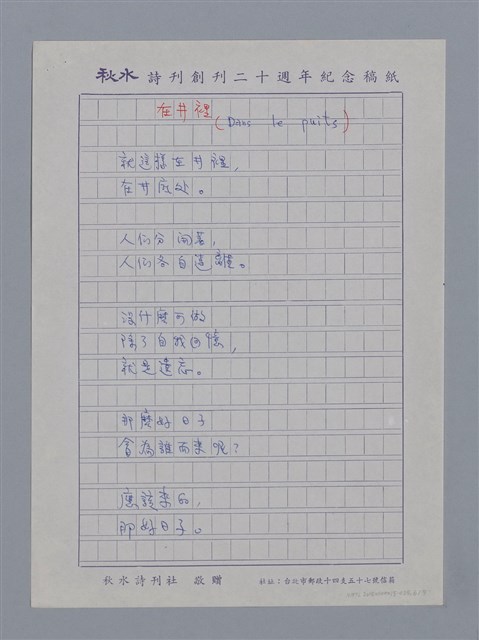 秋水 詩刊創刊二十週年紀念稿紙
在井裡
(Dans le puits)
就這樣在井裡,
在井底处。
人们分開著,
人们各自遠離。
沒什麼可做
除了自我回憶,
就是遺忘。
那麼好日子
會為誰而來呢?
應該來的,
那好日子。
秋水詩刊社 敬贈
社址:台北市郵政十四支五十七號信箱